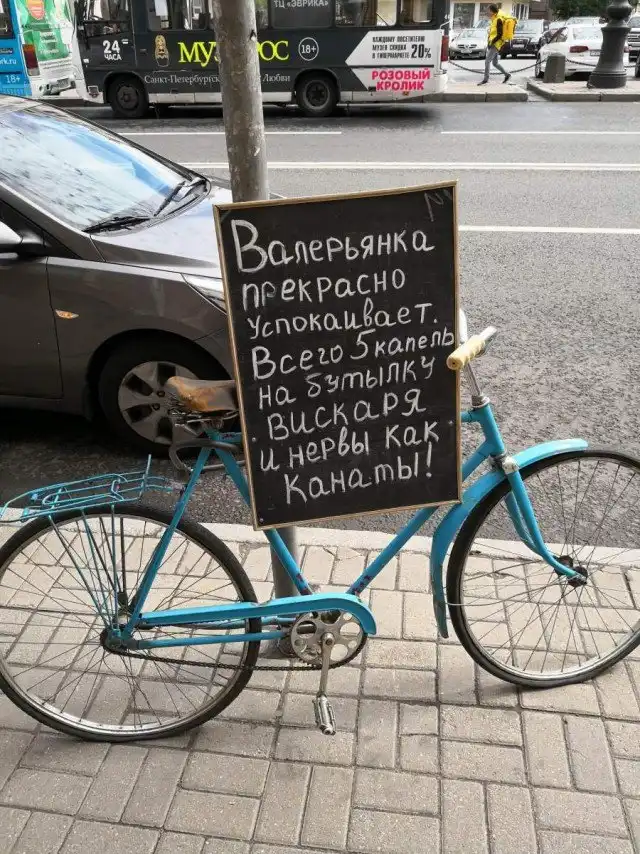 24
ЧАСА
18+
ТЦ «ЭВРИКА»
18+
КАЖДОМУ ПОСЕТИТЕЛЮ
МУЗЕЯ СКИДКА
В ГИПЕРМАРКЕТЕ 20%
РОЗОВЫЙ
КРОЛИК
Санкт-Петербург
Любви
Валерьянка
прекрасно
успокаивает.
Всего 5 капель
на бутылку
вискаря
и нервы как
канаты!